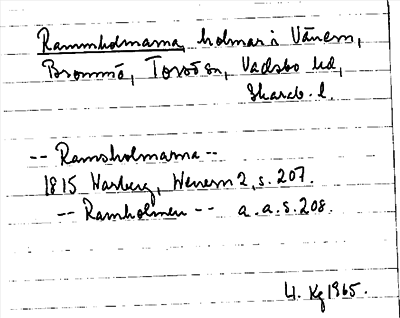 Rammholmarna, holmar i Vänern,
Brommö, Torsö sn, Vadsbo hd,
Skarab. l.
-- Ramsholmarna --
1815 Warberg, Wenern 2, s. 207.
-- Ramholmen -- a. a. s. 208.
Kg 1965.